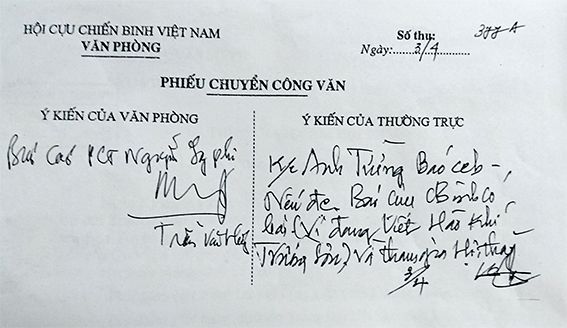 HỘI CỰU CHIẾN BINH VIỆT NAM
VĂN PHÒNG
Số thu:
Ngày:......3/4........
PHIẾU CHUYỂN CÔNG VĂN
Ý KIẾN CỦA VĂN PHÒNG
Báo cáo PCT Nguyễn
Trần Văn
Ý KIẾN CỦA THƯỜNG TRỰC
K/c Anh Tưởng Báo ccb –
Báo Cựu CBinh có
bài (Vì đang viết Hào Khí
Trường Sơn) và tham gia Hội thảo
3/4